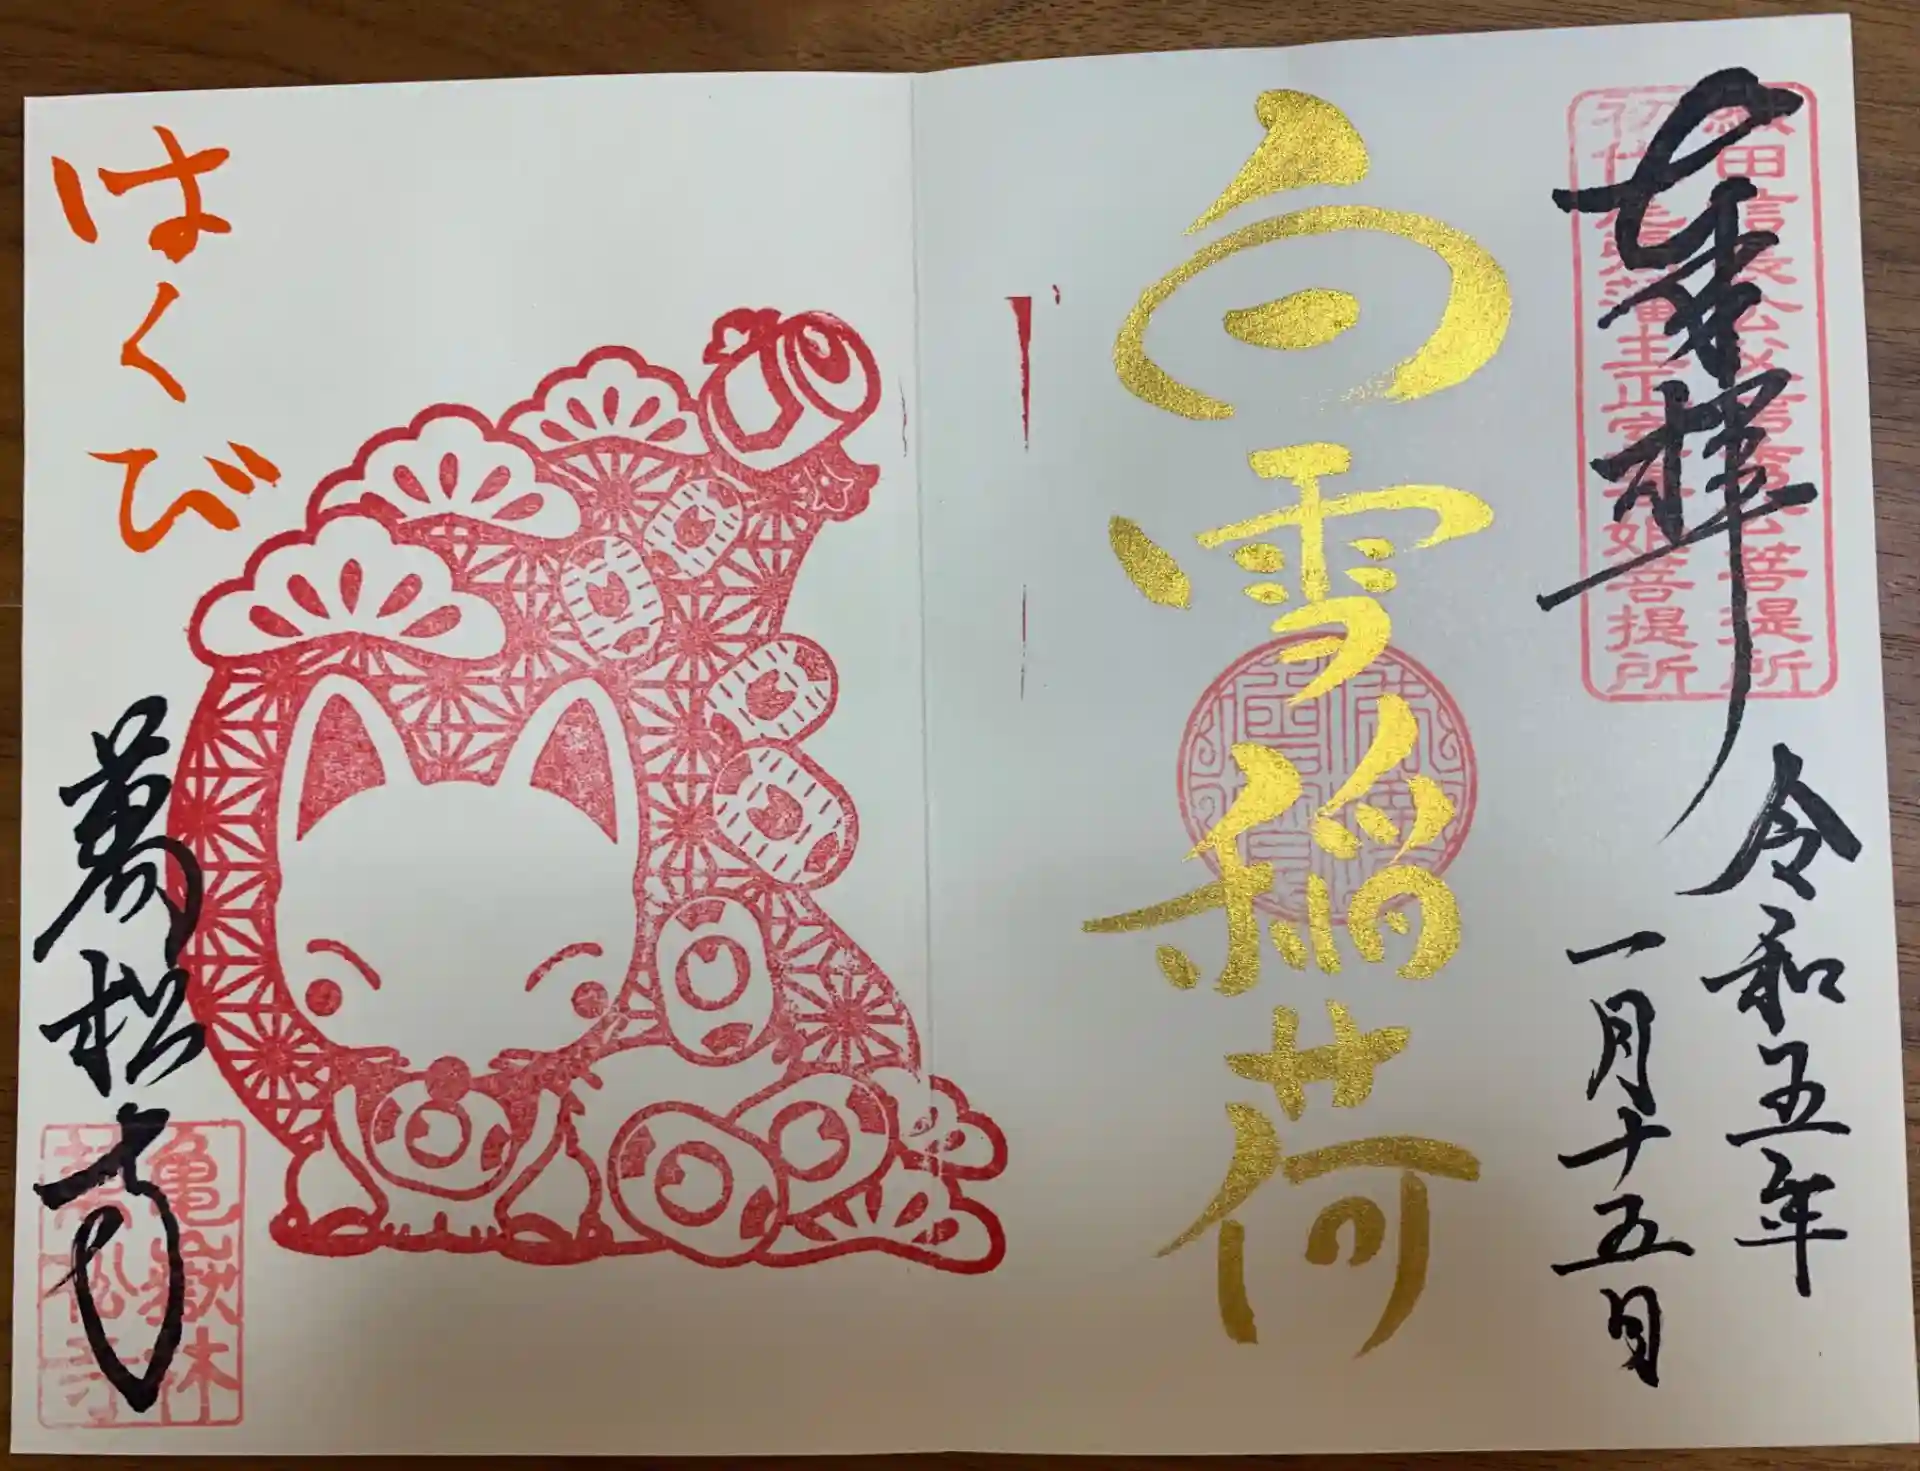 奉拝
織田信長公父信秀公菩提所
初代尾張藩主正室春姫菩提所
令和五年
一月十五日
白雪稲荷
はくび
萬松寺
亀嶽林
萬松寺